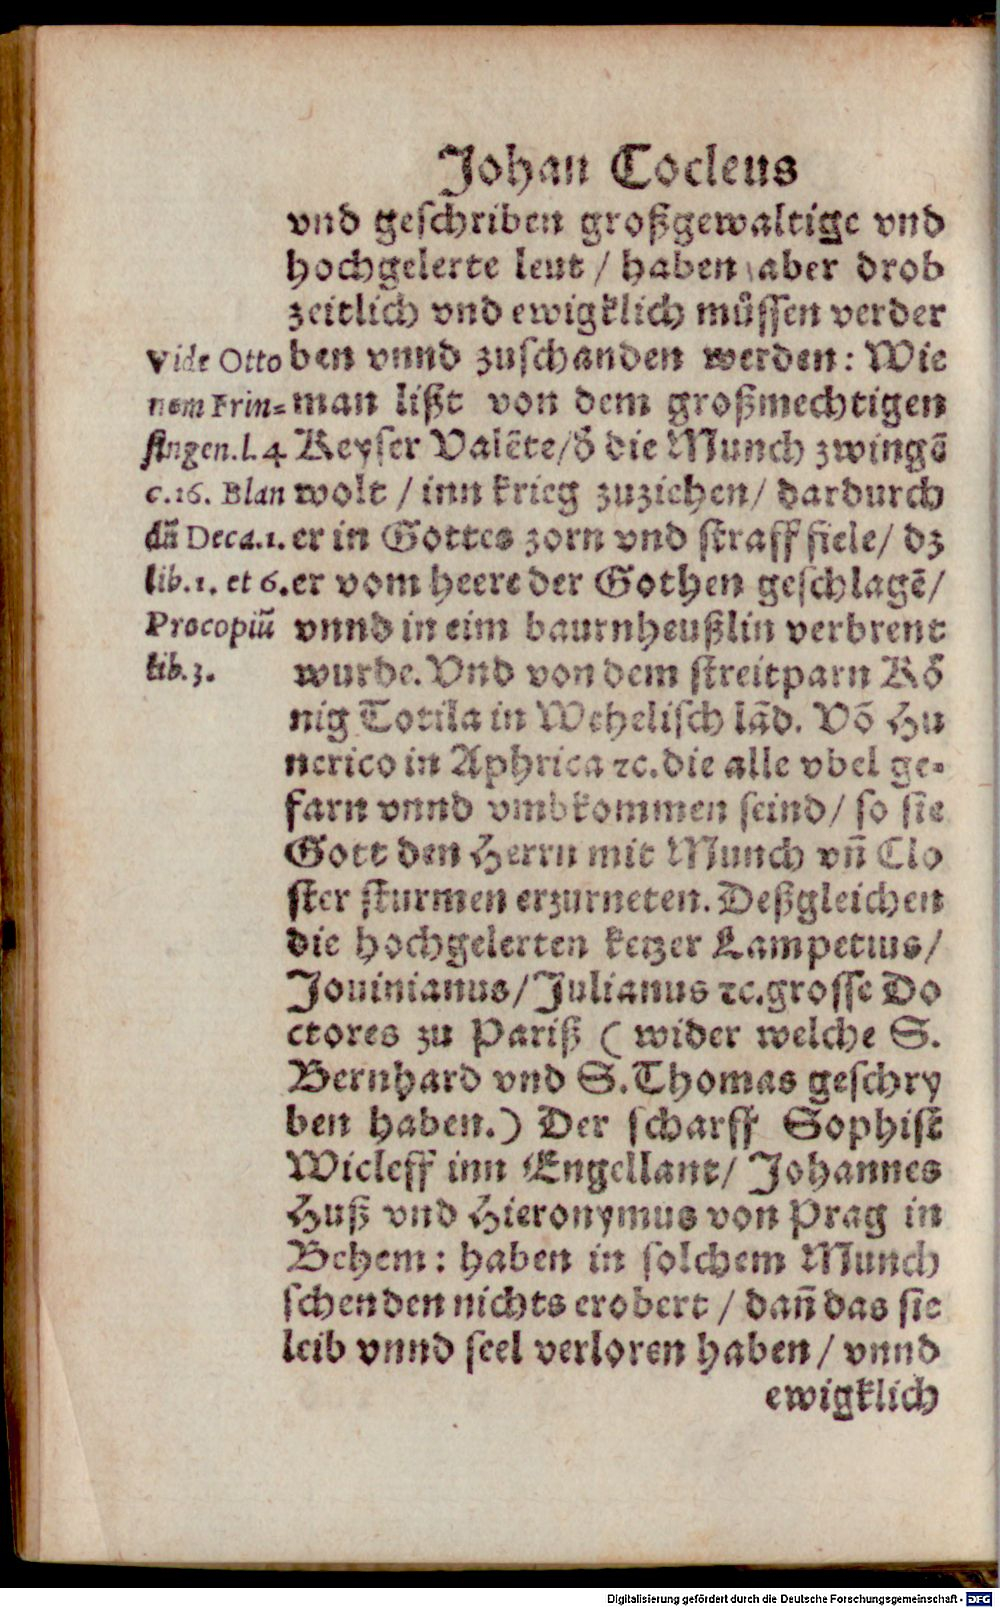 Johan Cocleus
vnd geschriben großgewaltige vnd
hochgelerte leut / haben aber drob
zeitlich vnd ewigklich muͤssen verder
ben vnnd zuschanden werden: Wie
man lißt von dem großmechtigen
Keyser Valēte/ð die Munch zwingē
wolt / inn krieg zuziehen/ dardurch
er in Gottes zorn vnd straff fiele/ dz
er vom heere der Gothen geschlagē/
vnnd in eim baurnheußlin verbrent
wurde. Vnd von dem streitparn Koͤ
nig Totila in Wehelisch lād. Vō Hu
nerico in Aphrica ꝛc. die alle vbel ge-
farn vnnd vmbkommen seind/ so sie
Gott den Herrn mit Munch vn̄ Clo
ster sturmen erzurneten. Deßgleichen
die hochgelerten ketzer Lampetius/
Jouinianus/ Julianus ꝛc. grosse Do
ctores zu Pariß ( wider welche S.
Bernhard vnd S. Thomas geschry
ben haben.) Der scharff Sophist
Wicleff inn Engellant/ Johannes
Huß vnd Hieronymus von Prag in
Behem: haben in solchem Munch
schenden nichts erobert / dan̄ das sie
leib vnnd seel verloren haben / vnnd
ewigklich
Vide Otto
nem Frin-
singen. l. 4
c. 16. Blan
dū Deca. 1.
lib. 1. et 6.
Procopiū
lib. 3.
Digitalisierung gefördert durch die Deutsche Forschungsgemeinschaft - DFG